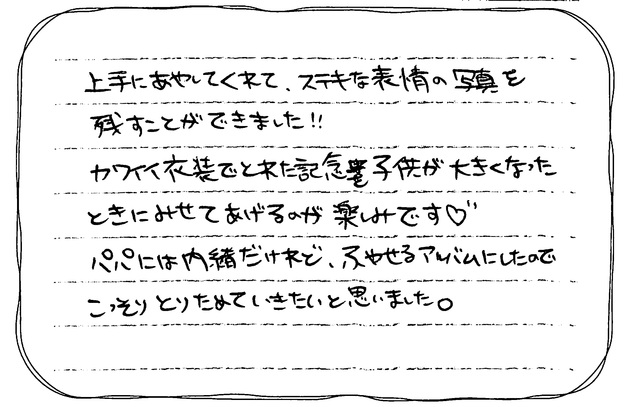 上手にあやしてくれて、ステキな表情の写真を
残すことができました!!
カワイイ衣装でとれた記念 子供が大きくなった
ときにみせてあげるのが楽しみです♡
パパには内緒だけれど、ふやせるアルバムにしたので
こっそりとりためていきたいと思いました。